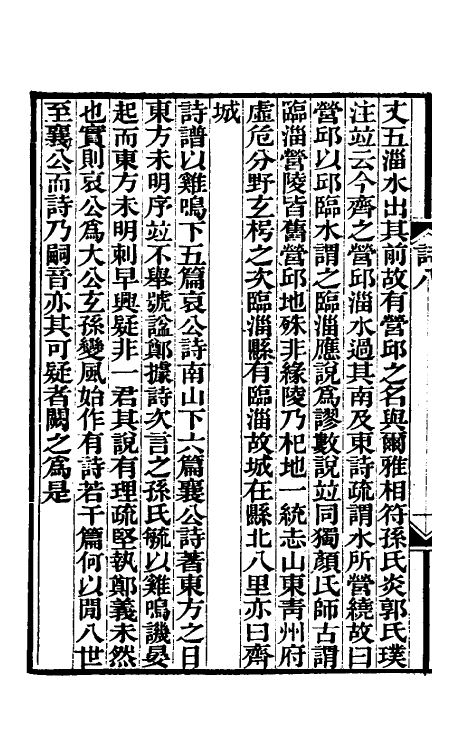 丈五淄水出其前故有營邱之名與爾雅相符孫氏炎郭氏璞
注竝云今齊之營邱淄水過其南及東詩疏謂水所營繞故曰
營邱以邱臨水謂之臨淄應說爲謬數說竝同獨顏氏師古謂
臨淄營陵皆舊營邱地殊非緣陵乃杞地一統志山東青州府
虛危分野玄枵之次臨淄縣有臨淄故城在縣北八里亦曰齊
城
詩譜以雞鳴下五篇哀公詩南山下六篇襄公詩著東方之日
東方未明序竝不舉號諡鄭據詩次言之孫氏毓以雞鳴譏晏
起而東方未明刺早興疑非一君其說有理疏堅執鄭義未然
也實則哀公爲大公玄孫變風始作有詩若干篇何以閒八世
至襄公而詩乃嗣音亦其可疑者闕之爲是
詩八